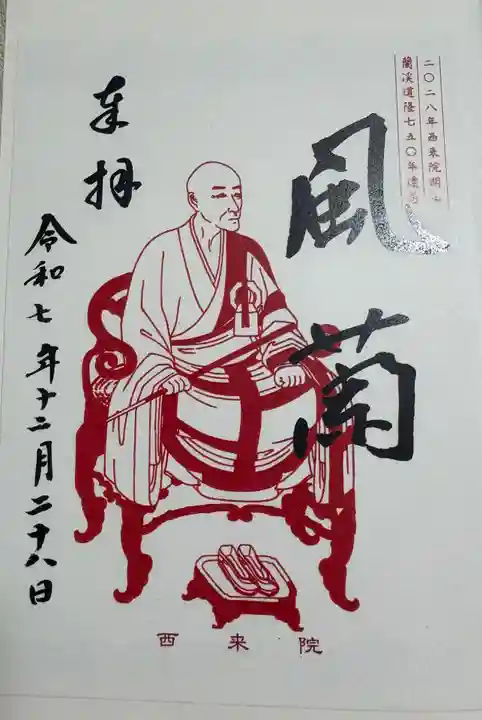 二〇二八年西来院開山
蘭溪道隆七五〇年遠忌
風蘭
奉拝
令和七年十二月二十八日
西来院